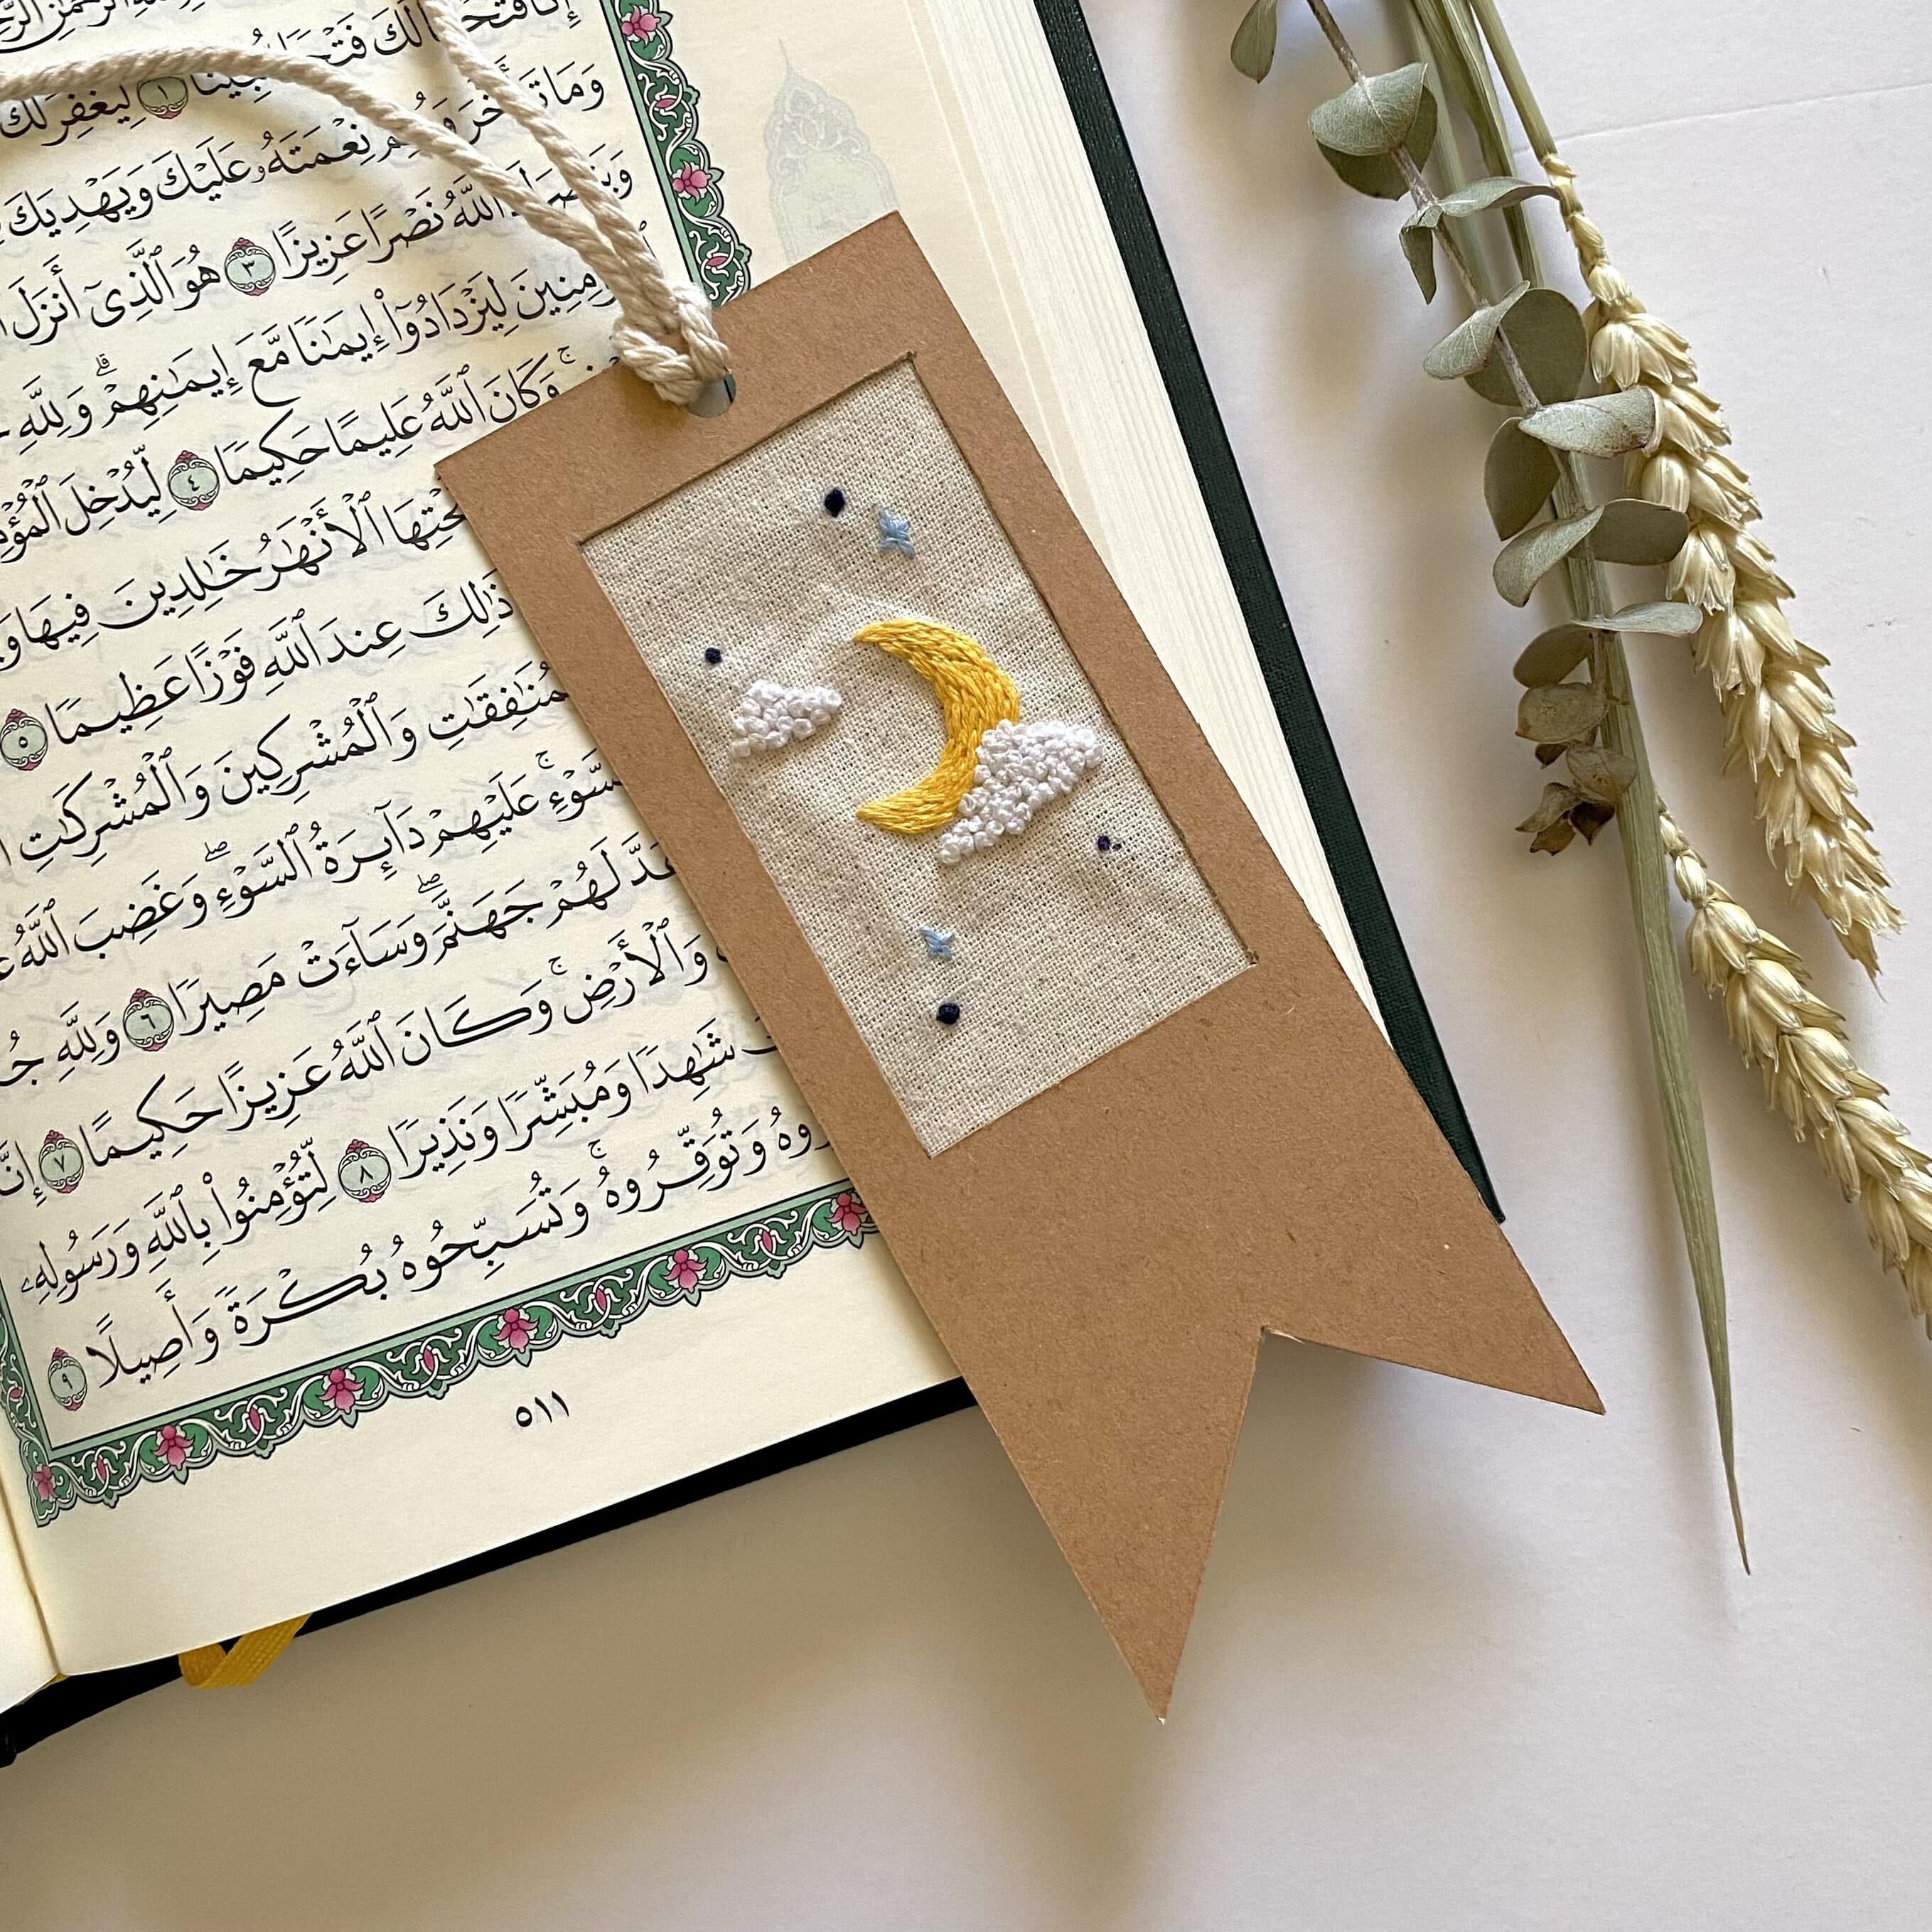 نَّا فَتَحْنَا لَكَ فَتْحًا مُّبِينًا ١ لِّيَغْفِرَ لَكَ
وَمَا تَأَخَّرَ وَيُتِمَّ نِعْمَتَهُۥ عَلَيْكَ وَيَهْدِيَكَ
وَيَنصُرَكَ ٱللَّهُ نَصْرًا عَزِيزًا ٣ هُوَ ٱلَّذِىٓ أَنزَلَ
لِيَزْدَادُوٓا۟ إِيمَٰنًا مَّعَ إِيمَٰنِهِمْ ۗ وَلِلَّهِ
وَكَانَ ٱللَّهُ عَلِيمًا حَكِيمًا ٤ لِّيُدْخِلَ ٱلْمُؤْ
ٱلْأَنْهَٰرُ خَٰلِدِينَ فِيهَا
ذَٰلِكَ عِندَ ٱللَّهِ فَوْزًا عَظِيمًا ٥
وَٱلْمُشْرِكِينَ وَٱلْمُشْرِكَٰتِ
ٱلسَّوْءِ ۚ عَلَيْهِمْ دَآئِرَةُ ٱلسَّوْءِ ۖ وَغَضِبَ ٱللَّهُ
لَهُمْ جَهَنَّمَ ۖ وَسَآءَتْ مَصِيرًا ٦ وَلِلَّهِ
وَٱلْأَرْضِ ۚ وَكَانَ ٱللَّهُ عَزِيزًا حَكِيمًا ٧ إِنَّ
شَٰهِدًا وَمُبَشِّرًا وَنَذِيرًا ٨ لِّتُؤْمِنُوا۟ بِٱللَّهِ وَرَسُولِهِۦ
وَتُوَقِّرُوهُ ۚ وَتُسَبِّحُوهُ بُكْرَةً وَأَصِيلًا ٩
٥١١